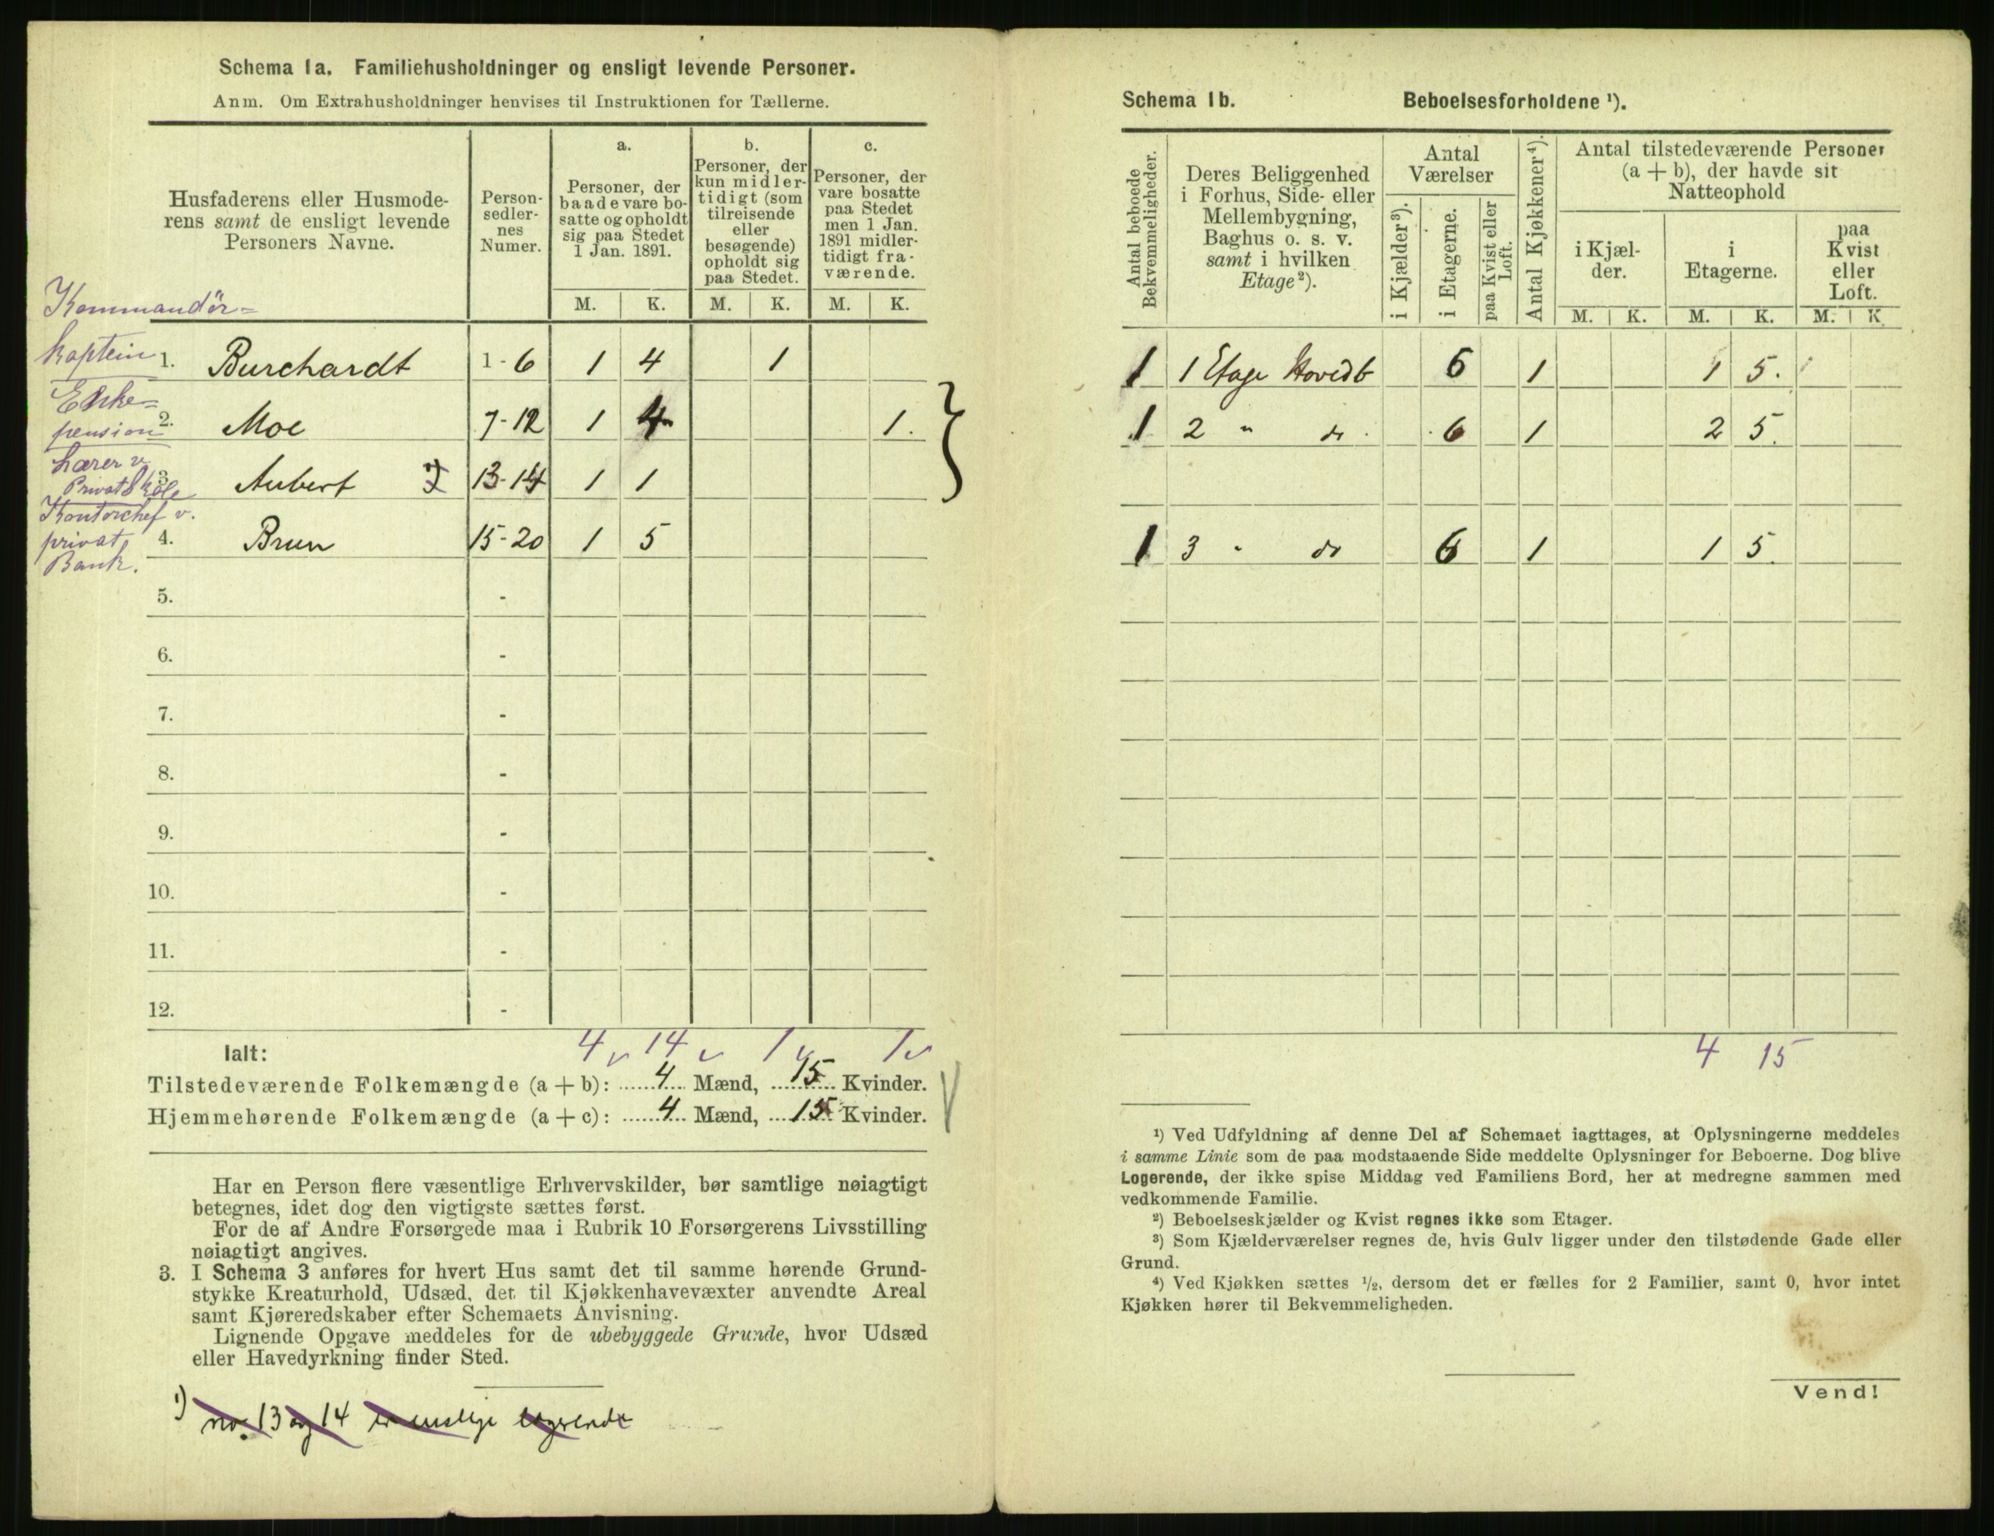 Schema 1a. Familiehusholdninger og ensligt levende Personer.
Anm. Om Extrahusholdninger henvises til Instruktionen for Tællerne.
Husfaderens eller Husmode-
rens samt de ensligt levende
Personers Navne.
Person-
sedler-
nes
Numer.
a.
Personer, der
baade vare bo-
satte og opholdt
sig paa Stedet
1 Jan. 1891.
b.
Personer, der
kun midler-
tidigt (som
tilreisende
eller
besøgende)
opholdt sig
paa Stedet.
c.
Personer, der
vare bosatte
paa Stedet
men 1 Jan.
1891 midler-
tidigt fra-
værende.
M. K. M. K. M. K.
Kommandör-
kaptein 1. Burchardt 1-6 1 4 1
Enke-
pension 2. Moe 7-12 1 4 1.
Lærer v.
Privat Skole 3. Aubert 13-14 1 1
Kontorchef v.
privat 4. Brun 15-20 1 5
Bank.
5. -
6. -
7. -
8. -
9. -
10. -
11. -
12. -
Ialt: 4 14 1 1
Tilstedeværende Folkemængde (a + b): 4 Mænd, 15 Kvinder.
Hjemmehørende Folkemængde (a + c): 4 Mænd, 15 Kvinder.
Har en Person flere væsentlige Erhvervskilder, bør samtlige nøiagtigt
betegnes, idet dog den vigtigste sættes først.
For de af Andre Forsørgede maa i Rubrik 10 Forsørgerens Livsstilling
nøiagtigt angives.
3. I Schema 3 anføres for hvert Hus samt det til samme hørende Grund-
stykke Kreaturhold, Udsæd, det til Kjøkkenhavevæxter anvendte Areal
samt Kjøreredskaber efter Schemaets Anvisning.
Lignende Opgave meddeles for de ubebyggede Grunde, hvor Udsæd
eller Havedyrkning finder Sted.
1) no. 13 og 14 er enslige logerende
Schema 1b. Beboelsesforholdene 1).
Antal beboede
Bekvemmeligheder.
Deres Beliggenhed
i Forhus, Side- eller
Mellembygning,
Baghus o. s. v.
samt i hvilken
Etage 2).
Antal
Værelser
i Kjælder 3).
i Etagerne.
paa Kvist eller
Loft.
Antal Kjøkkener 4).
Antal tilstedeværende Personer
(a + b), der havde sit
Natteophold
i Kjæl-
der.
i
Etagerne.
paa
Kvist
eller
Loft.
M. K. M. K. M. K
1 1 Etage Hovedb 6 1 1 5.
1 2 " do 6 1 2 5.
1 3 " do 6 1 1 5.
4 15
1) Ved Udfyldning af denne Del af Schemaet iagttages, at Oplysningerne meddeles
i samme Linie som de paa modstaaende Side meddelte Oplysninger for Beboerne. Dog blive
Logerende, der ikke spise Middag ved Familiens Bord, her at medregne sammen med
vedkommende Familie.
2) Beboelseskjælder og Kvist regnes ikke som Etager.
3) Som Kjælderværelser regnes de, hvis Gulv ligger under den tilstødende Gade eller
Grund.
4) Ved Kjøkken sættes 1/2, dersom det er fælles for 2 Familier, samt 0, hvor intet
Kjøkken hører til Bekvemmeligheden.
Vend!